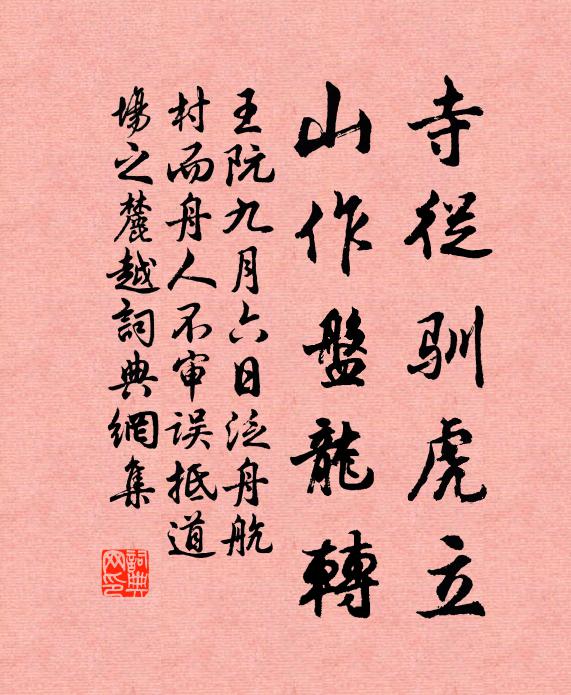 寺從馴虎立
山作盤龍轉
王阮九月六日泛舟航
村而舟人不审误抵道
場之麓越詞典網集
詞典
网印